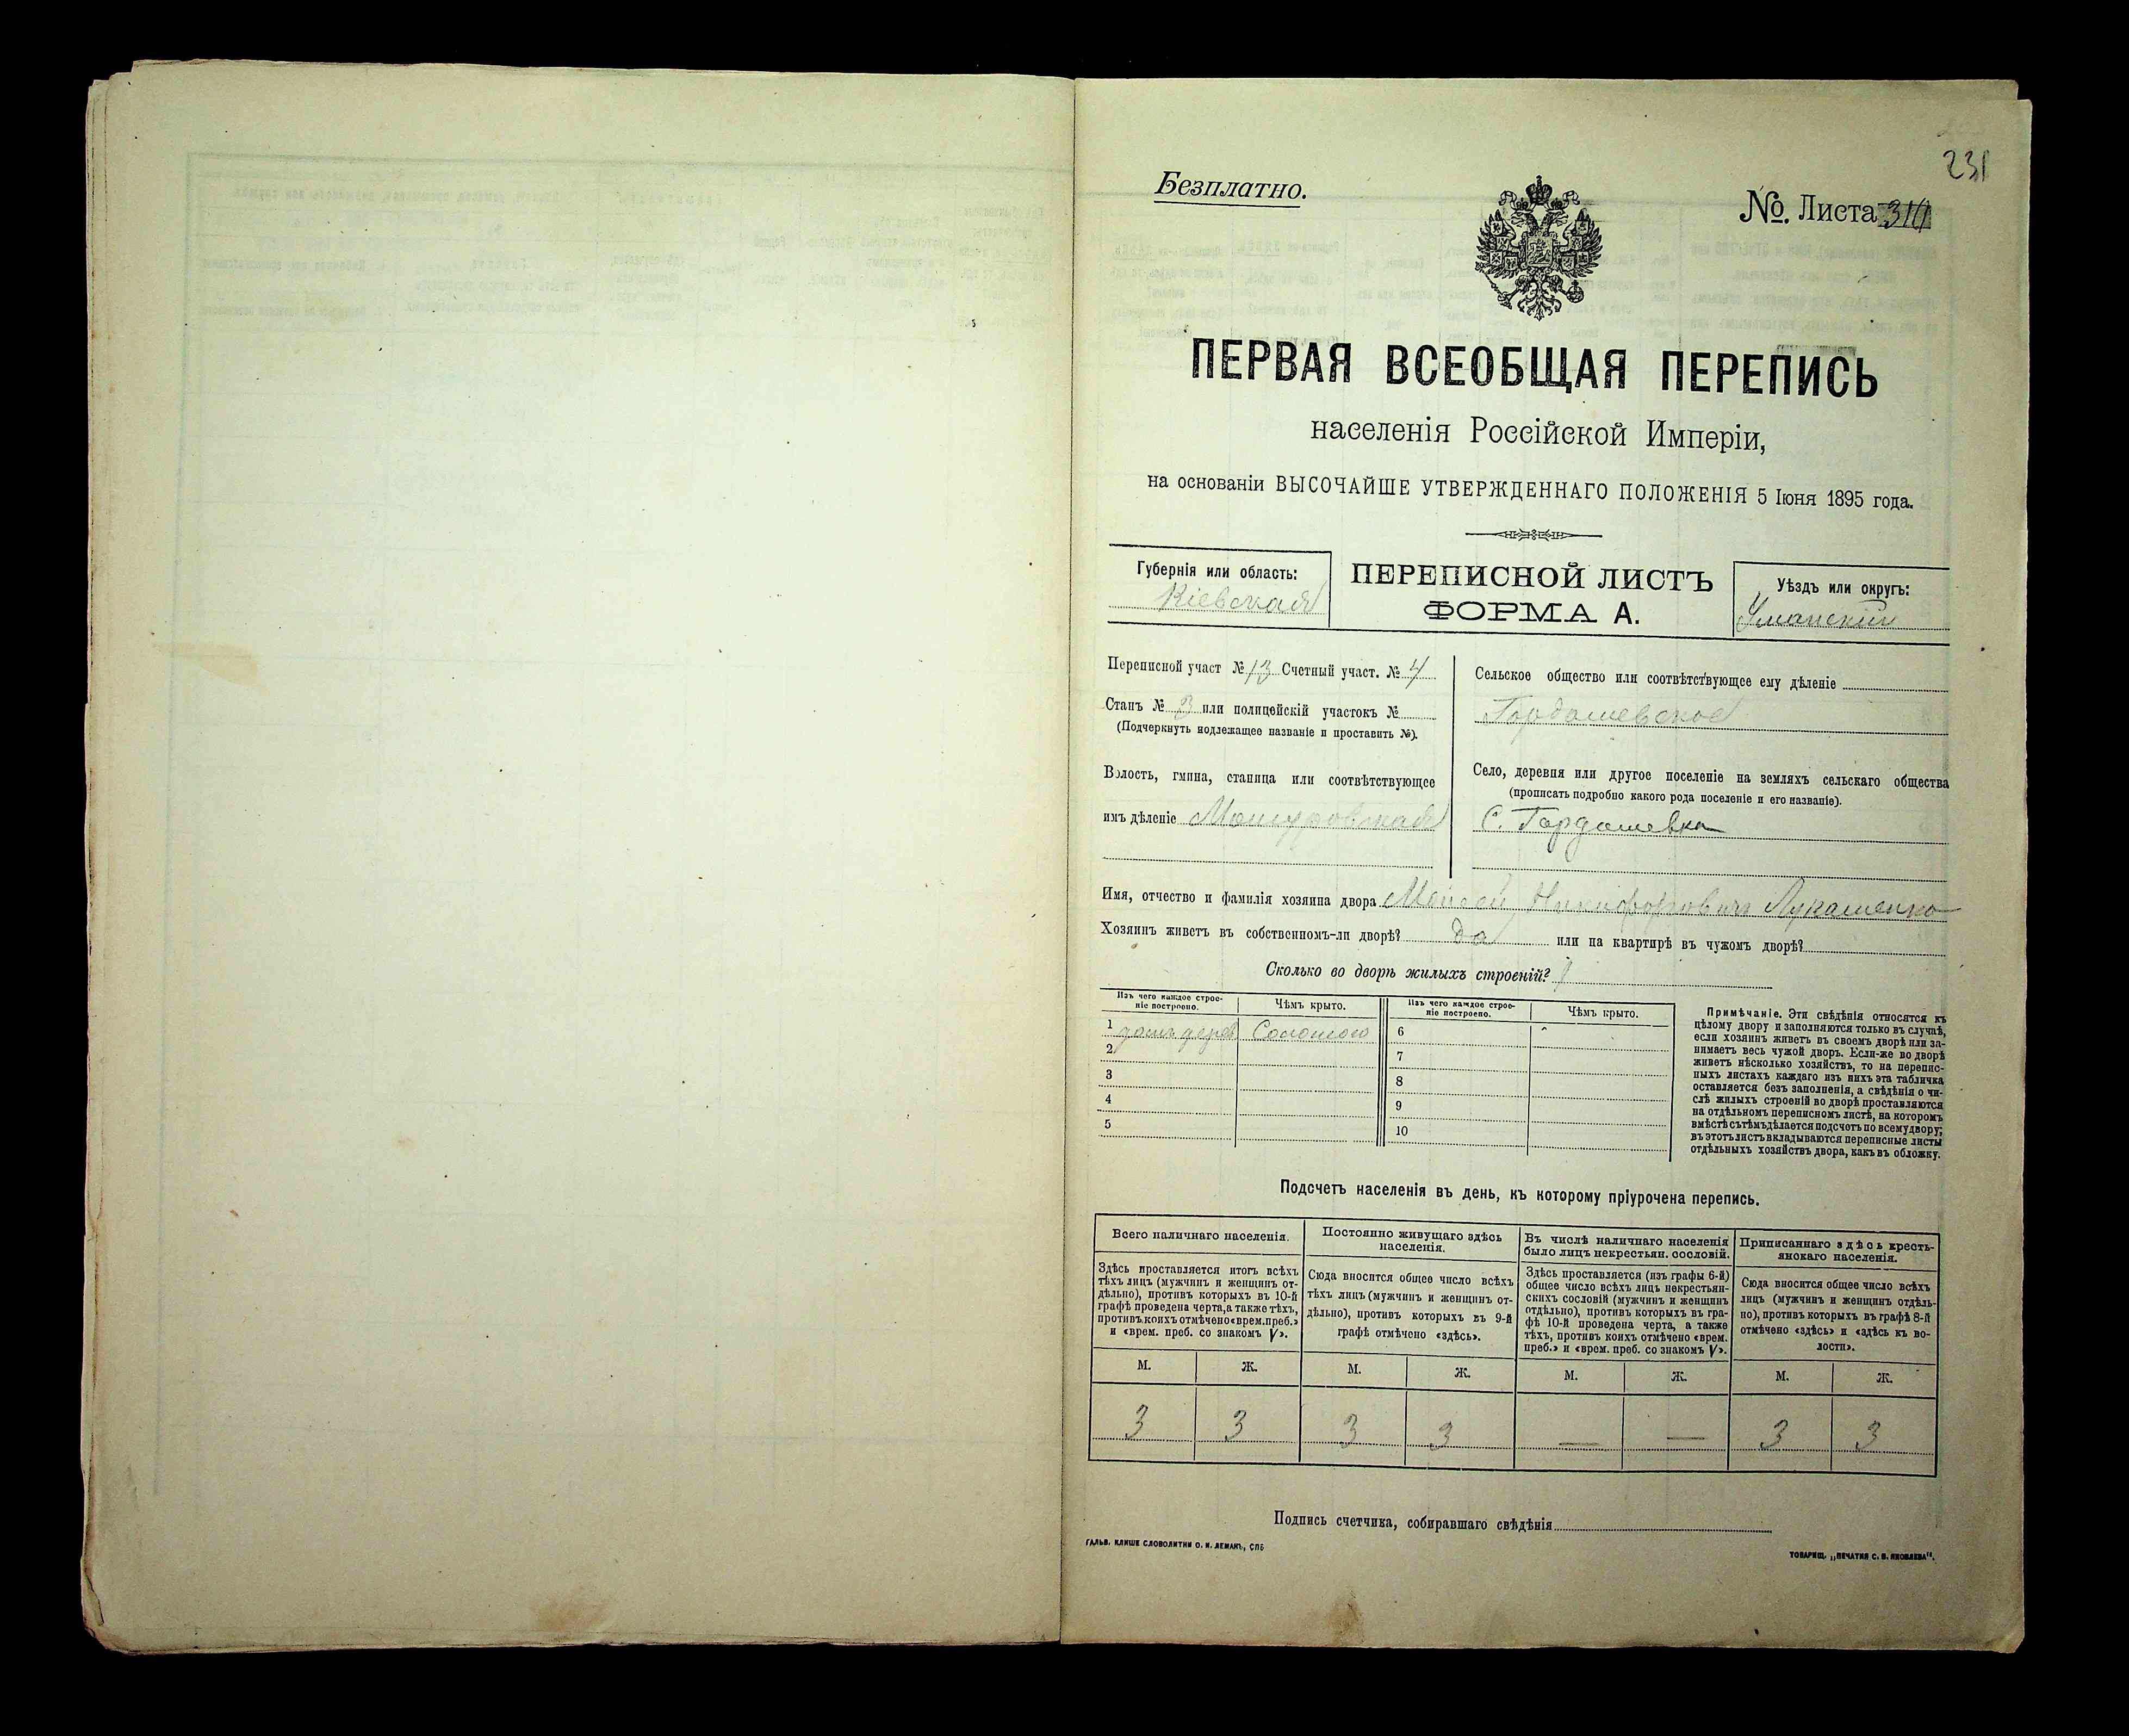 231
Безплатно.
№. Листа
ПЕРВАЯ ВСЕОБЩАЯ ПЕРЕПИСЬ
населенія Россійской Имперіи,
на основаніи ВЫСОЧАЙШЕ УТВЕРЖДЕННАГО ПОЛОЖЕНІЯ 5 Іюня 1895 года.
Губернія или область:
Кіевская
ПЕРЕПИСНОЙ ЛИСТЪ
ФОРМА А.
Уѣздъ или округъ:
Уманскій
Переписной участ № 13 Счетный участ. № 4
Станъ № 3 или полицейскій участокъ №
(Подчеркнуть подлежащее названіе и проставить №).
Волость, гмина, станица или соотвѣтствующее
имъ дѣленіе
Сельское общество или соотвѣтствующее ему дѣленіе
Гордашевское
Село, деревня или другое поселеніе на земляхъ сельскаго общества
(прописать подробно какого рода поселеніе и его названіе).
С. Гордашевка
Имя, отчество и фамилія хозяина двора Моисей Никифоровичъ Лукашенко
Хозяинъ живетъ въ собственномъ-ли дворѣ? да или на квартирѣ въ чужомъ дворѣ?
Сколько во дворѣ жилыхъ строеній? 1
Изъ чего каждое строе-
ніе построено.
Чѣмъ крыто.
Изъ чего каждое строе-
ніе построено.
Чѣмъ крыто.
1 домъ дерев Соломою 6
2 7
3 8
4 9
5 10
Примѣчаніе. Эти свѣдѣнія относятся къ
цѣлому двору и заполняются только въ случаѣ,
если хозяинъ живетъ въ своемъ дворѣ или за-
нимаетъ весь чужой дворъ. Если-же во дворѣ
живетъ нѣсколько хозяйствъ, то на перепис-
ныхъ листахъ каждаго изъ нихъ эта табличка
оставляется безъ заполненія, а свѣдѣнія о чи-
слѣ жилыхъ строеній во дворѣ проставляются
на отдѣльномъ переписномъ листѣ, на которомъ
вмѣстѣ съ тѣмъ дѣлается подсчетъ по всему двору;
въ этотъ листъ вкладываются переписные листы
отдѣльныхъ хозяйствъ двора, какъ въ обложку.
Подсчетъ населенія въ день, къ которому пріурочена перепись.
Всего наличнаго населенія.
Здѣсь проставляется итогъ всѣхъ
тѣхъ лицъ (мужчинъ и женщинъ от-
дѣльно), противъ которыхъ въ 10-й
графѣ проведена черта, а также тѣхъ,
противъ коихъ отмѣчено «врем. преб.»
и «врем. преб. со знакомъ V».
Постоянно живущаго здѣсь
населенія.
Сюда вносится общее число всѣхъ
тѣхъ лицъ (мужчинъ и женщинъ от-
дѣльно), противъ которыхъ въ 9-й
графѣ отмѣчено «здѣсь».
Въ числѣ наличнаго населенія
было лицъ некрестьян. сословій.
Здѣсь проставляется (изъ графы 6-й)
общее число всѣхъ лицъ некрестьян-
скихъ сословій (мужчинъ и женщинъ
отдѣльно), противъ которыхъ въ гра-
фѣ 10-й проведена черта, а также
тѣхъ, противъ коихъ отмѣчено «врем.
преб.» и «врем. преб. со знакомъ V».
Приписаннаго здѣсь кресть-
янскаго населенія.
Сюда вносится общее число всѣхъ
лицъ (мужчинъ и женщинъ отдѣль-
но), противъ которыхъ въ графѣ 8-й
отмѣчено «здѣсь» и «здѣсь въ во-
лости».
М. Ж. М. Ж. М. Ж. М. Ж.
3 3 3 3 — — 3 3
Подпись счетчика, собиравшаго свѣдѣнія
ГАЛЬВ. КЛИШЕ СЛОВОЛИТНИ О. И. ЛЕМАНЪ, СПБ
ТОВАРИЩ. „ПЕЧАТНЯ С. П. ЯКОВЛЕВА".